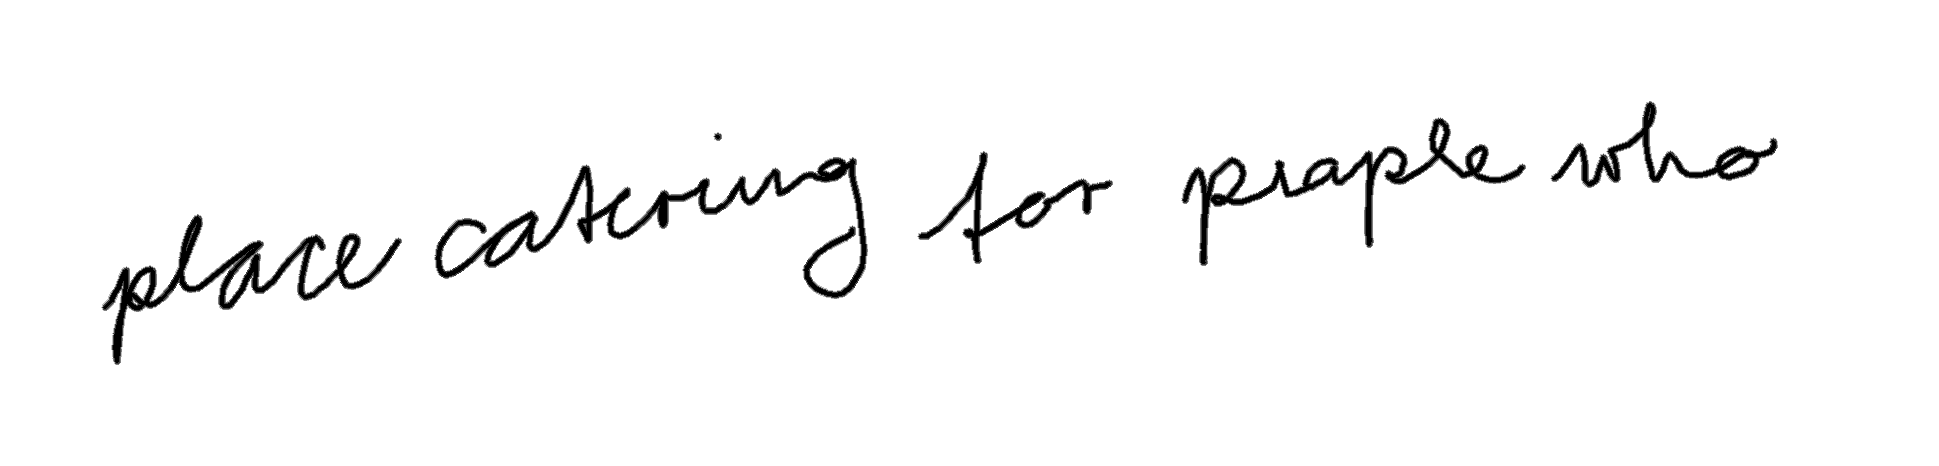 place catering for people who